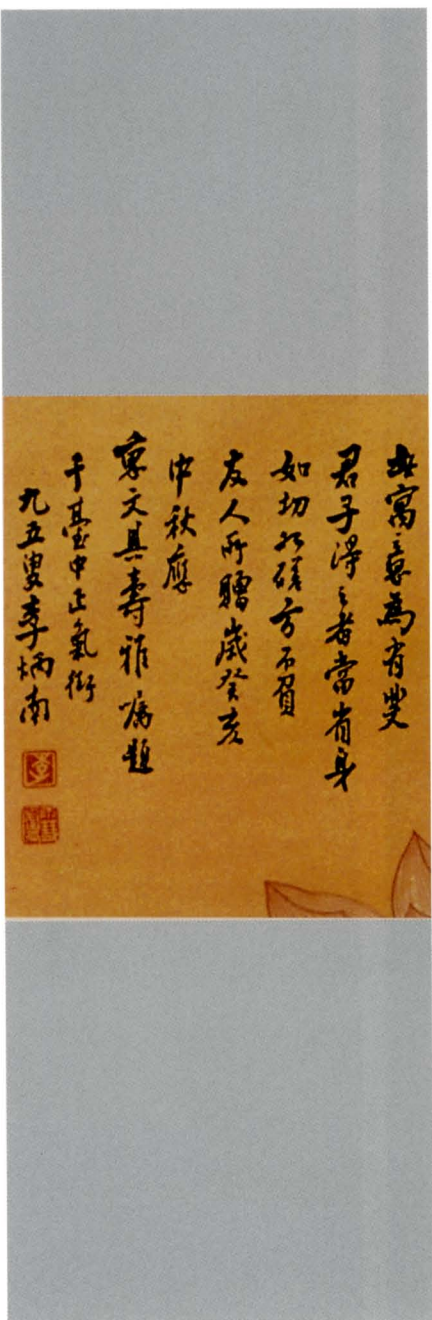 寓意為有斐
君子得之者當省身
如切如磋方不負
友人所贈歲癸亥
中秋應
文具壽雅囑題
于臺中正氣街
九五叟李炳南
李